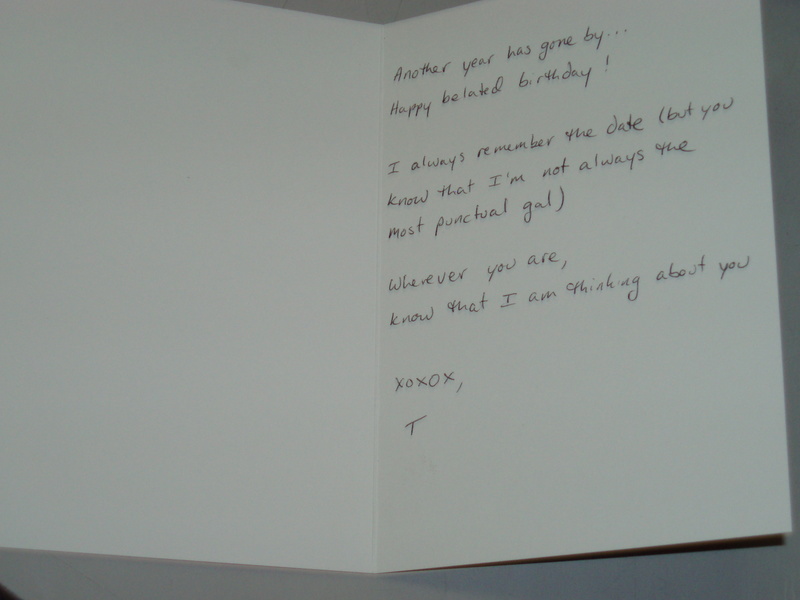 Another year has gone by...
Happy belated birthday!
I always remember the date (but you
know that I'm not always the
most punctual gal)
Wherever you are,
know that I am thinking about you
xoxox,
T